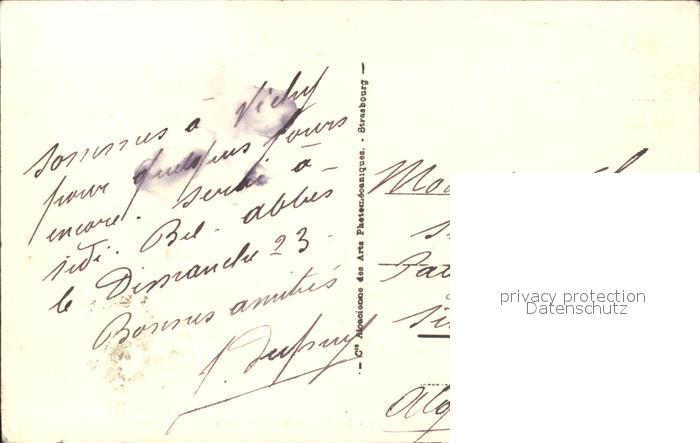 Sommes à Vichy
pour quelques jours
encore. Serai à
Sidi. Bel. abbès
le Dimanche 23.
Bonnes amitiés
J. Dupuy
— Cie Alsacienne des Arts Photomécaniques. - Strasbourg —
privacy protection
Datenschutz